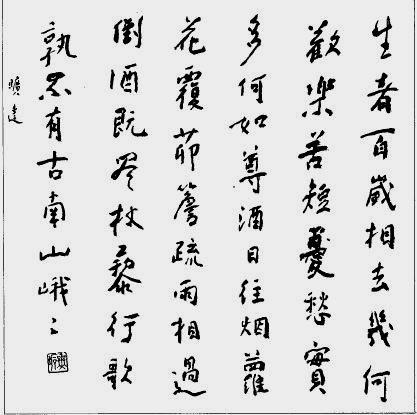 生者百歲相去幾何
歡樂苦短憂愁實
多何如尊酒日往烟蘿
花覆茆簷疏雨相過
倒酒既盡杖藜行歌
孰不有古南山峨〻
曠達